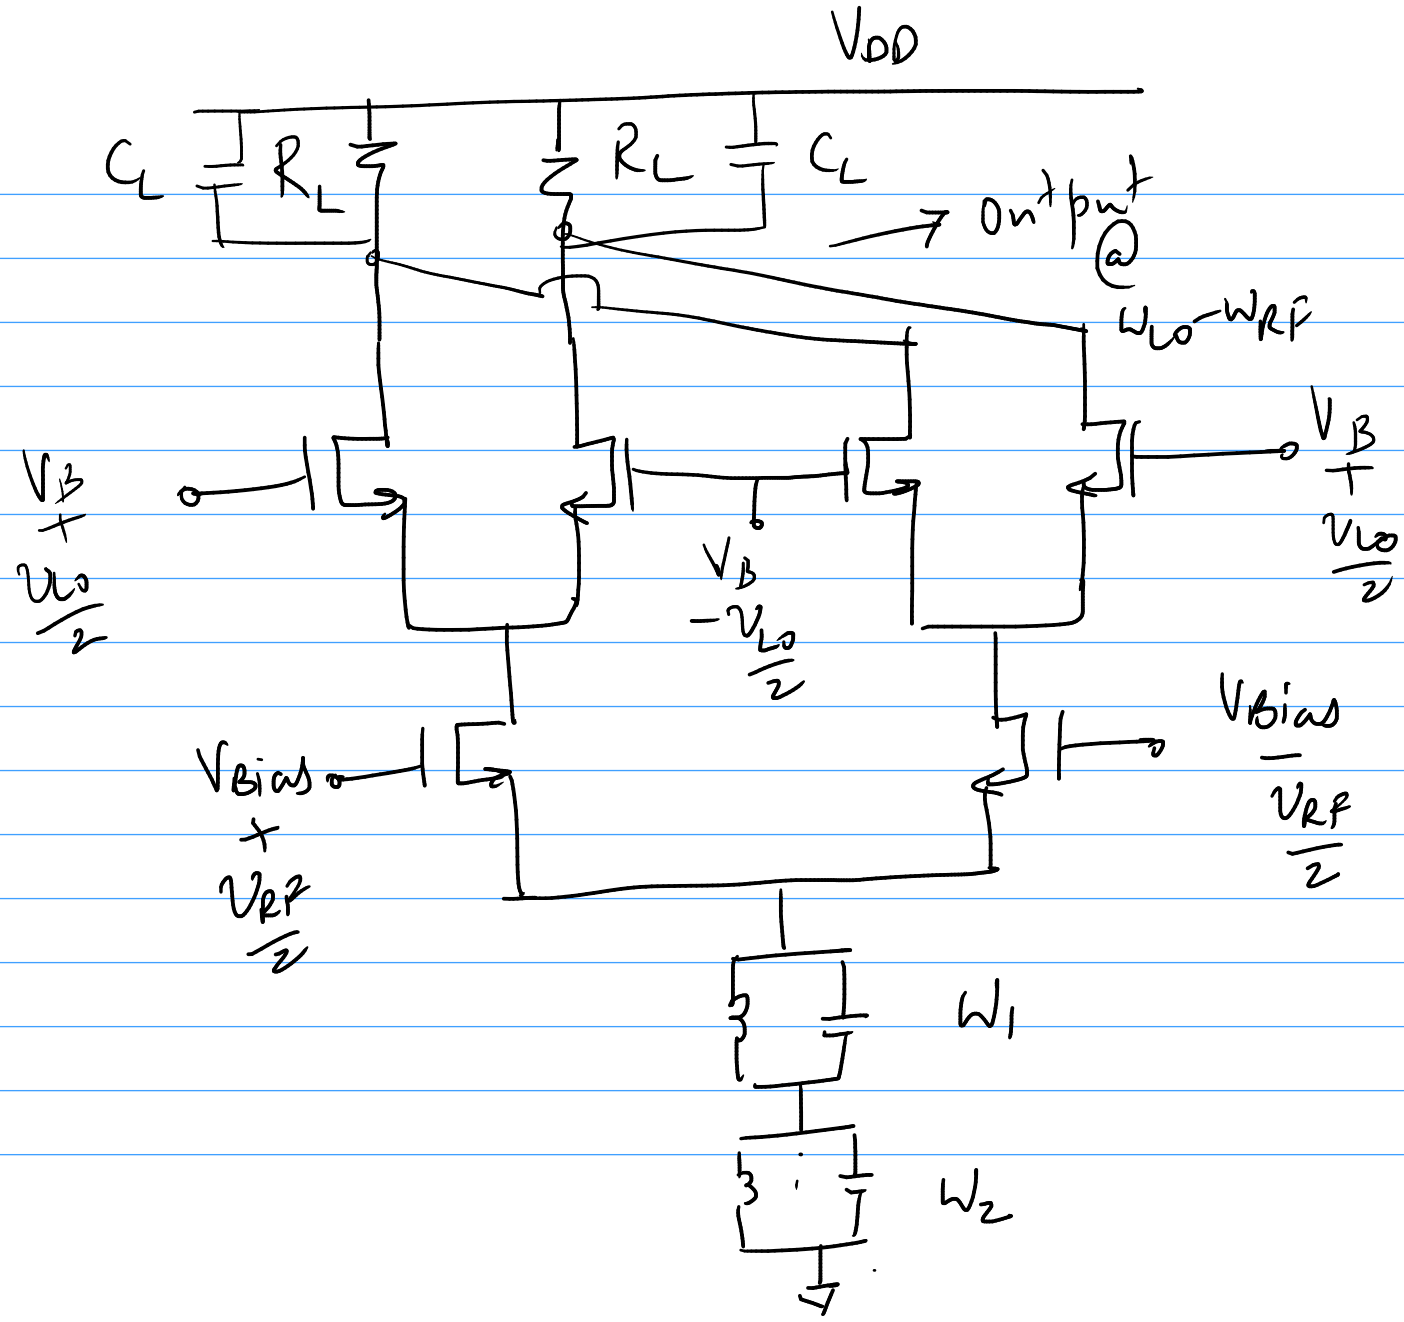 VDD
CL
RL
RL
CL
Output
@
WLO-WRF
VB
+
VLO
/2
VB
-VLO
/2
VB
+
VLO
/2
VBias
+
VRF
/2
VBias
-
VRF
/2
W1
W2